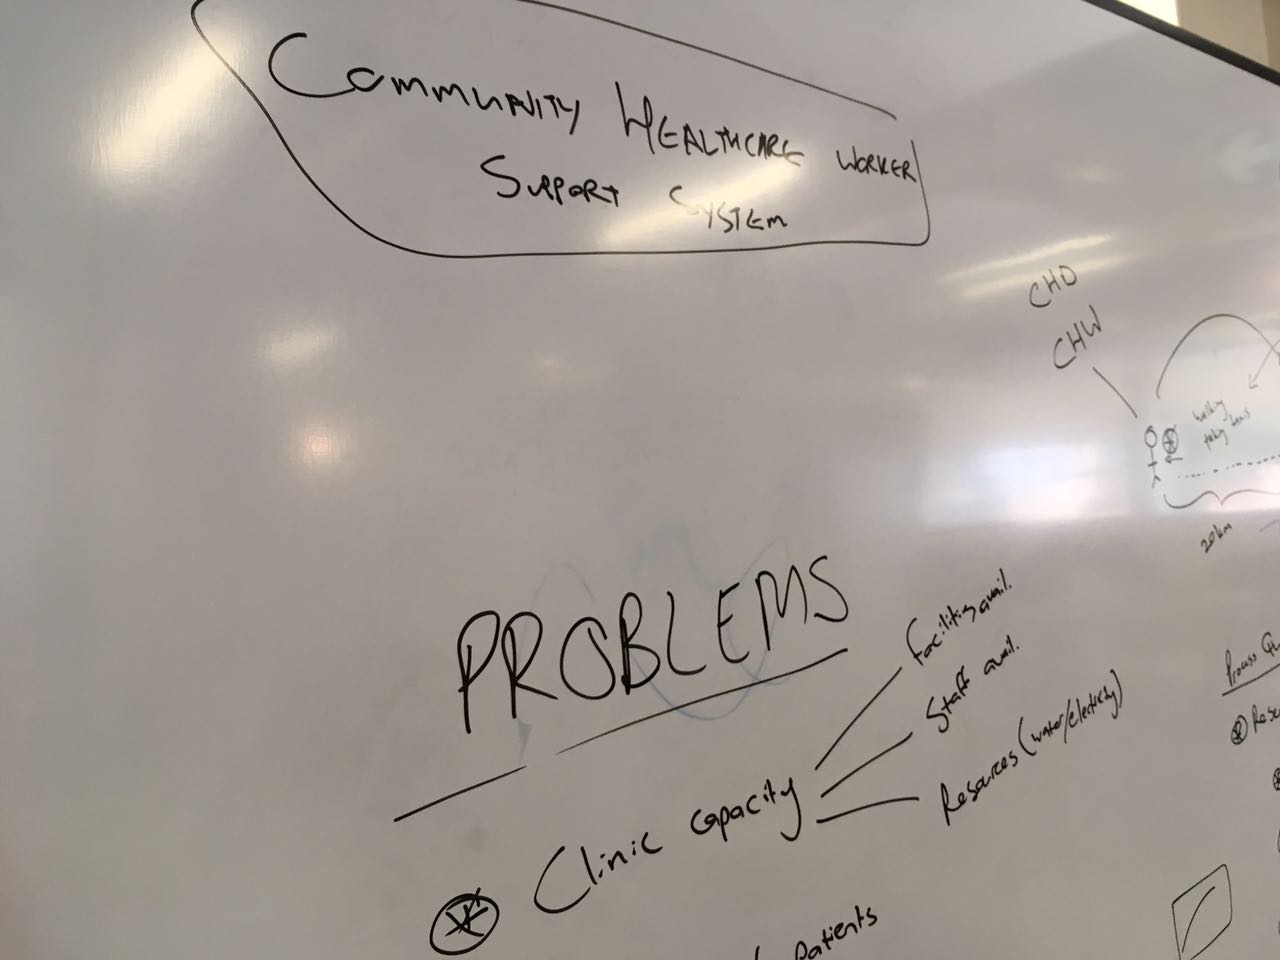 COMMUNITY HEALTHCARE WORKER
SUPPORT SYSTEM
CHO
CHW
walking
taking hours
20km
PROBLEMS
Clinic capacity
Facilities avail.
Staff avail.
Resources (water/electricity)
patients
Process